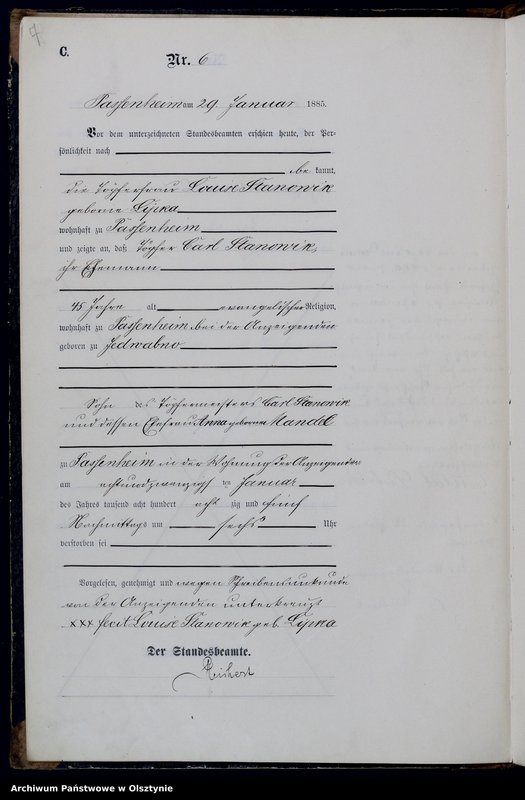 4
C.
Nr. 6
Passenheim am 29 Januar 1885.
Vor dem unterzeichneten Standesbeamten erschien heute, der Per-
sönlichkeit nach
be kannt,
die Töpferfrau Louise Stanowik
geborne Lipka
wohnhaft zu Passenheim
und zeigte an, daß Töpfer Carl Stanowik,
ihr Ehemann
45 Jahre alt evangelischer Religion,
wohnhaft zu Passenheim bei der Anzeigenden
geboren zu Jedwabno
Sohn des Töpfermeisters Carl Stanowik
und dessen Ehefrau Anna geborene Mandel
zu Passenheim in der Wohnung der Anzeigenden
am achtundzwanzigsten Januar
des Jahres tausend acht hundert acht zig und fünf
Nachmittags um sechs Uhr
verstorben sei
Vorgelesen, genehmigt und wegen Schreibensunkunde
von der Anzeigenden unterkreuzt
xxx fecit Louise Stanowik geb. Lipka
Der Standesbeamte.
Reichert
Archiwum Państwowe w Olsztynie